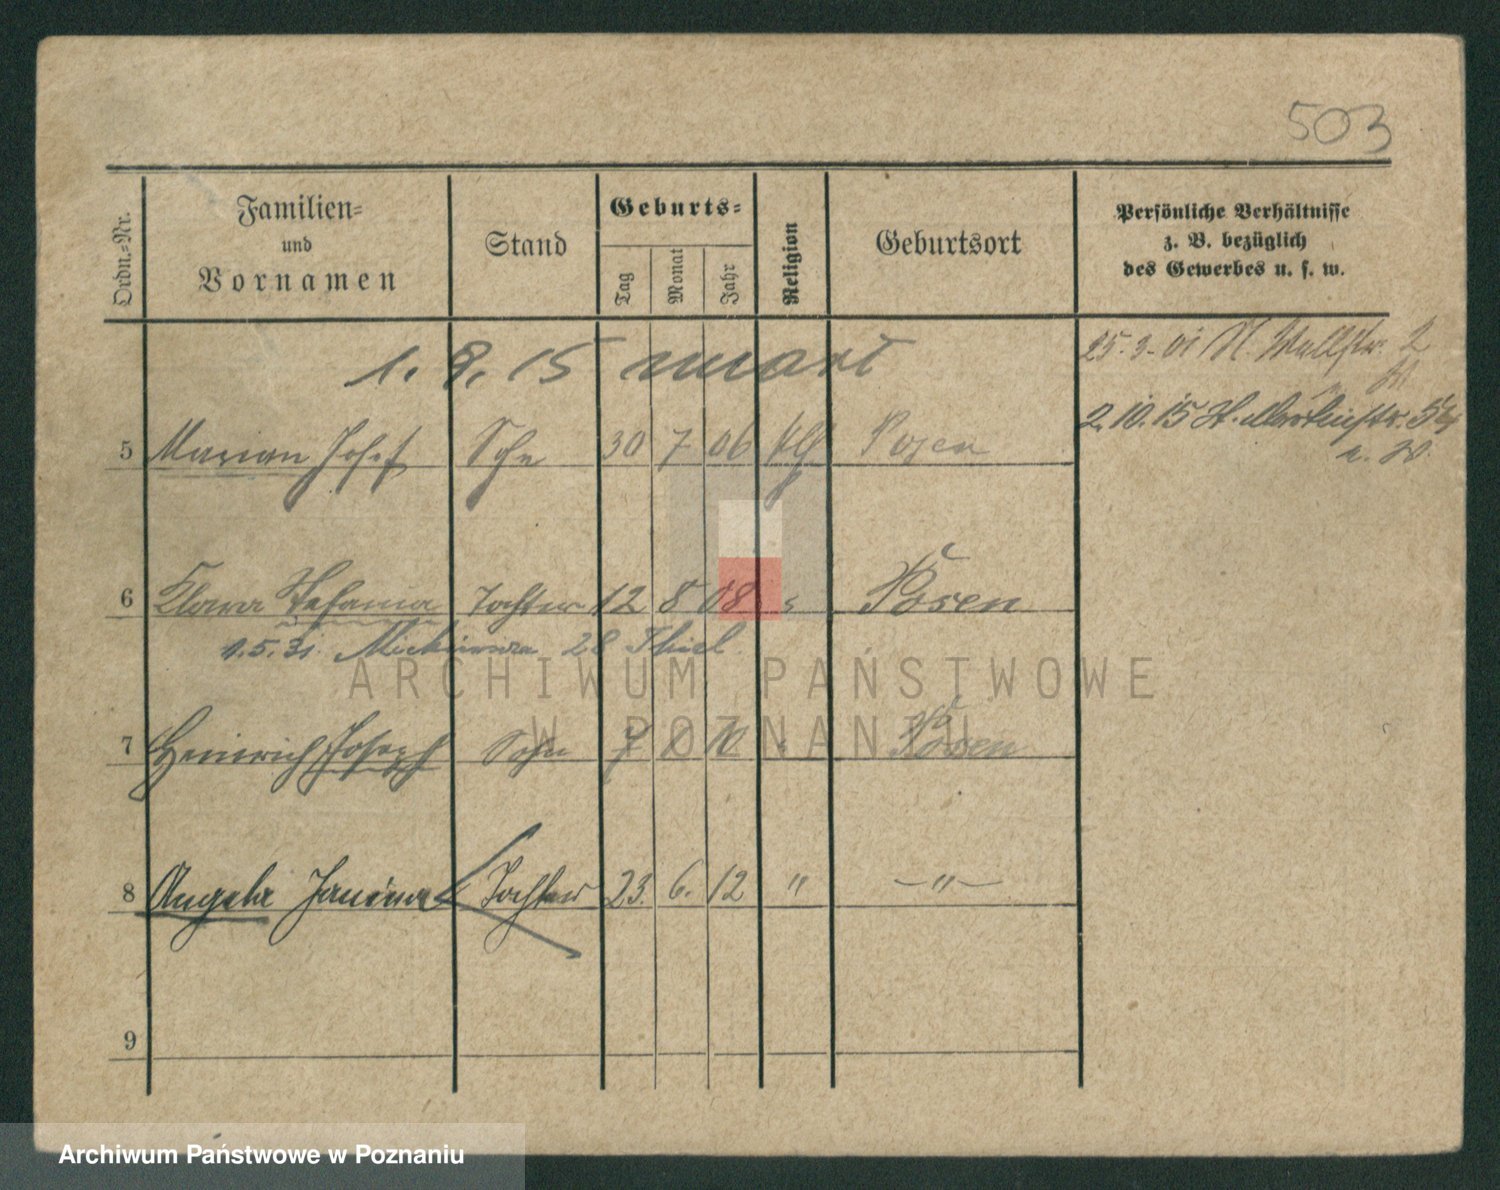 503
Ordn.-Nr.
Familien-
und
Vornamen
Stand
Geburts-
Tag
Monat
Jahr
Religion
Geburtsort
Persönliche Verhältnisse
z. B. bezüglich
des Gewerbes u. s. w.
1. 8. 15
25. 3. 01 Wallstr. 2
2. 10. 15
5 Marian Josef Sohn 30 7 06 Posen
6 Klara Stefania Tochter 12 8 08 " Posen
1. 5. 31. 28
7 Heinrich Joseph Sohn 10 " Posen
8 Angela Janina Tochter 23. 6. 12 " – " –
9
ARCHIWUM PAŃSTWOWE
W POZNANIU
Archiwum Państwowe w Poznaniu